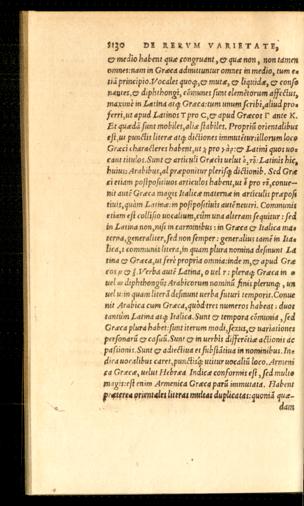 8130 DE RERVM VARIETATE,
& medio habent quæ congruant, & quæ non, non tamen
omnes: nam in Græca admittuntur omnes in medio, tum e-
tiã principio. Vocales quoq;, & mutæ, & liquidæ, & conso
nantes, & diphthongi, cõmunes sunt elemẽtorum affectus,
maximè in Latina atq; Græca: tum unum scribi, aliud pro-
ferri, ut apud Latinos T pro C, & apud Græcos Γ ante Κ.
Et quædã sunt mobiles, aliæ stabiles. Propriũ orientalibus
est, ut punctis literæ atq; dictiones immutẽtur: illorum loco
Græci characteres habent, ut Latini quos uo-
cant titulos. Sunt & articuli Græcis uelut Latinis hic,
huius: Arabibus, al præponitur plerisq; dictionib. Sed Græ
ci etiam postpositiuos articulos habent, ut pro conue-
nit autẽ Græca magis Italicæ maternæ in articulis præposi
tiuis, quàm Latinæ: in postpositiuis autẽ neutri. Communis
etiam est collisio uocalium, cùm una alteram sequitur: sed
in Latina non, nisi in carminibus: in Græca & Italica ma-
terna, generaliter, sed non semper: generalius tamẽ in Ita-
lica, & communis literis, in quam plura nomina desinunt La
tina & Græca, ut ferè propria omnia: inde m, & apud Græ
cos Verba autẽ Latina, o uel r: pleraq; Græca in
uel diphthongũ: Arabicorum nominũ finis plerunq; un
uel u: in quam literã desinunt uerba futuri temporis. Conue
nit Arabica cum Græca, quòd tres numeros habeat: duos
tantùm Latina atq; Italica. Sunt & tempora cõmunia, sed
Græca plura habet: sunt iterum modi, sexus, & uariationes
personarũ & casuũ. Sunt & in uerbis differẽtiæ actionis ac
passionis. Sunt & adiectiua et substãtiua in nominibus. In-
dica uocalibus caret, punctisq; utitur uocaliũ loco. Armeni
ca Græcæ, uelut Hebrææ Indica conformis est, sed multo
magis: est enim Armenica Græca parũ immutata. Habent
præterea orientales literas multas duplicatas: quoniã quæ-
dam